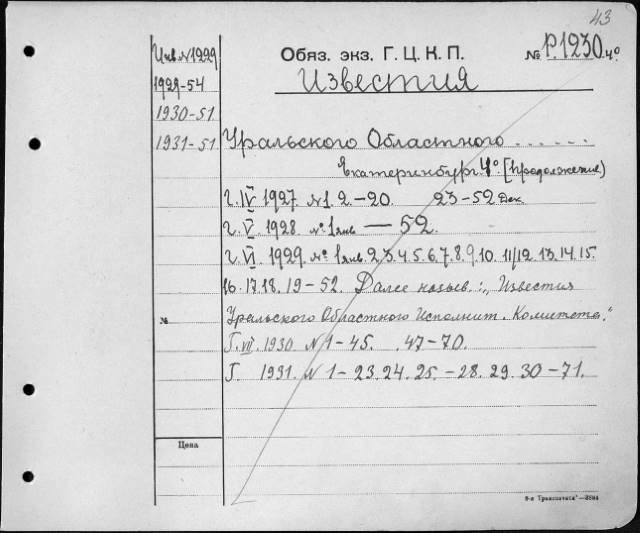 43
Инв.N1229
Обяз. экз. Г. Ц. К. П.
№ Р.1230.4°
Известия
1929-54
1930-51
1931-51
Уральского Областного ......
Екатеринбург. 4° (продолжение)
Г. IV 1927. N1. 2-20. 23-52 Дек.
Г. V. 1928. № 1 янв — 52.
Г. VI. 1929. № 1 янв. 2.3.4.5.6.7.8.9.10. 11/12. 13.14.15.
16.17.18.19-52. Далее назыв.: „Известия
№
Уральского Областного Исполнит. Комитета."
Г. VII. 1930. N 1-45. 47-70.
Г. 1931. N 1-23.24.25.-28.29.30-71.
Цена